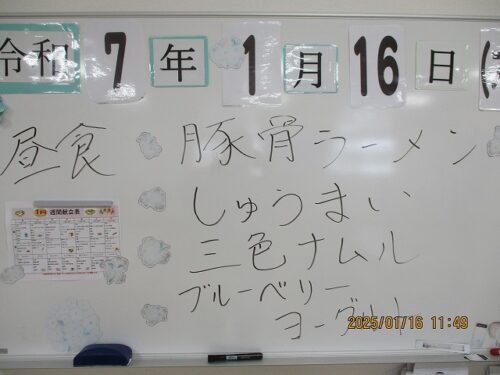 令和 7 年 1 月 16 日 (
昼食
豚骨ラーメン
しゅうまい
三色ナムル
ブルーベリー
ヨーグルト
1月 週間献立表
2025/01/16 11:49